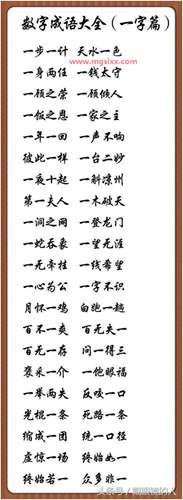 数字成语大全（一字篇）
一步一计 天水一色
www.mgslxx.com
一身两任 一钱太守
一顾之荣 一倾倾人
一饭之恩 一家之主
一年一回 一声不响
彼此一样 一台二妙
一夜十起 一斛凉州
第一夫人 一木破天
一涧之网 一登龙门
一蛇吞象 一望无涯
一无牵挂 一线希望
一心为公 一字不识
月怀一鸡 白跑一趟
百不一爽 百无失一
百无一存 问一得三
褒采一介 一饱眼福
一举两失 反咬一口
光棍一条 死路一条
缩成一团 统一口径
虚惊一场 终始如一
终始若一 众多非一